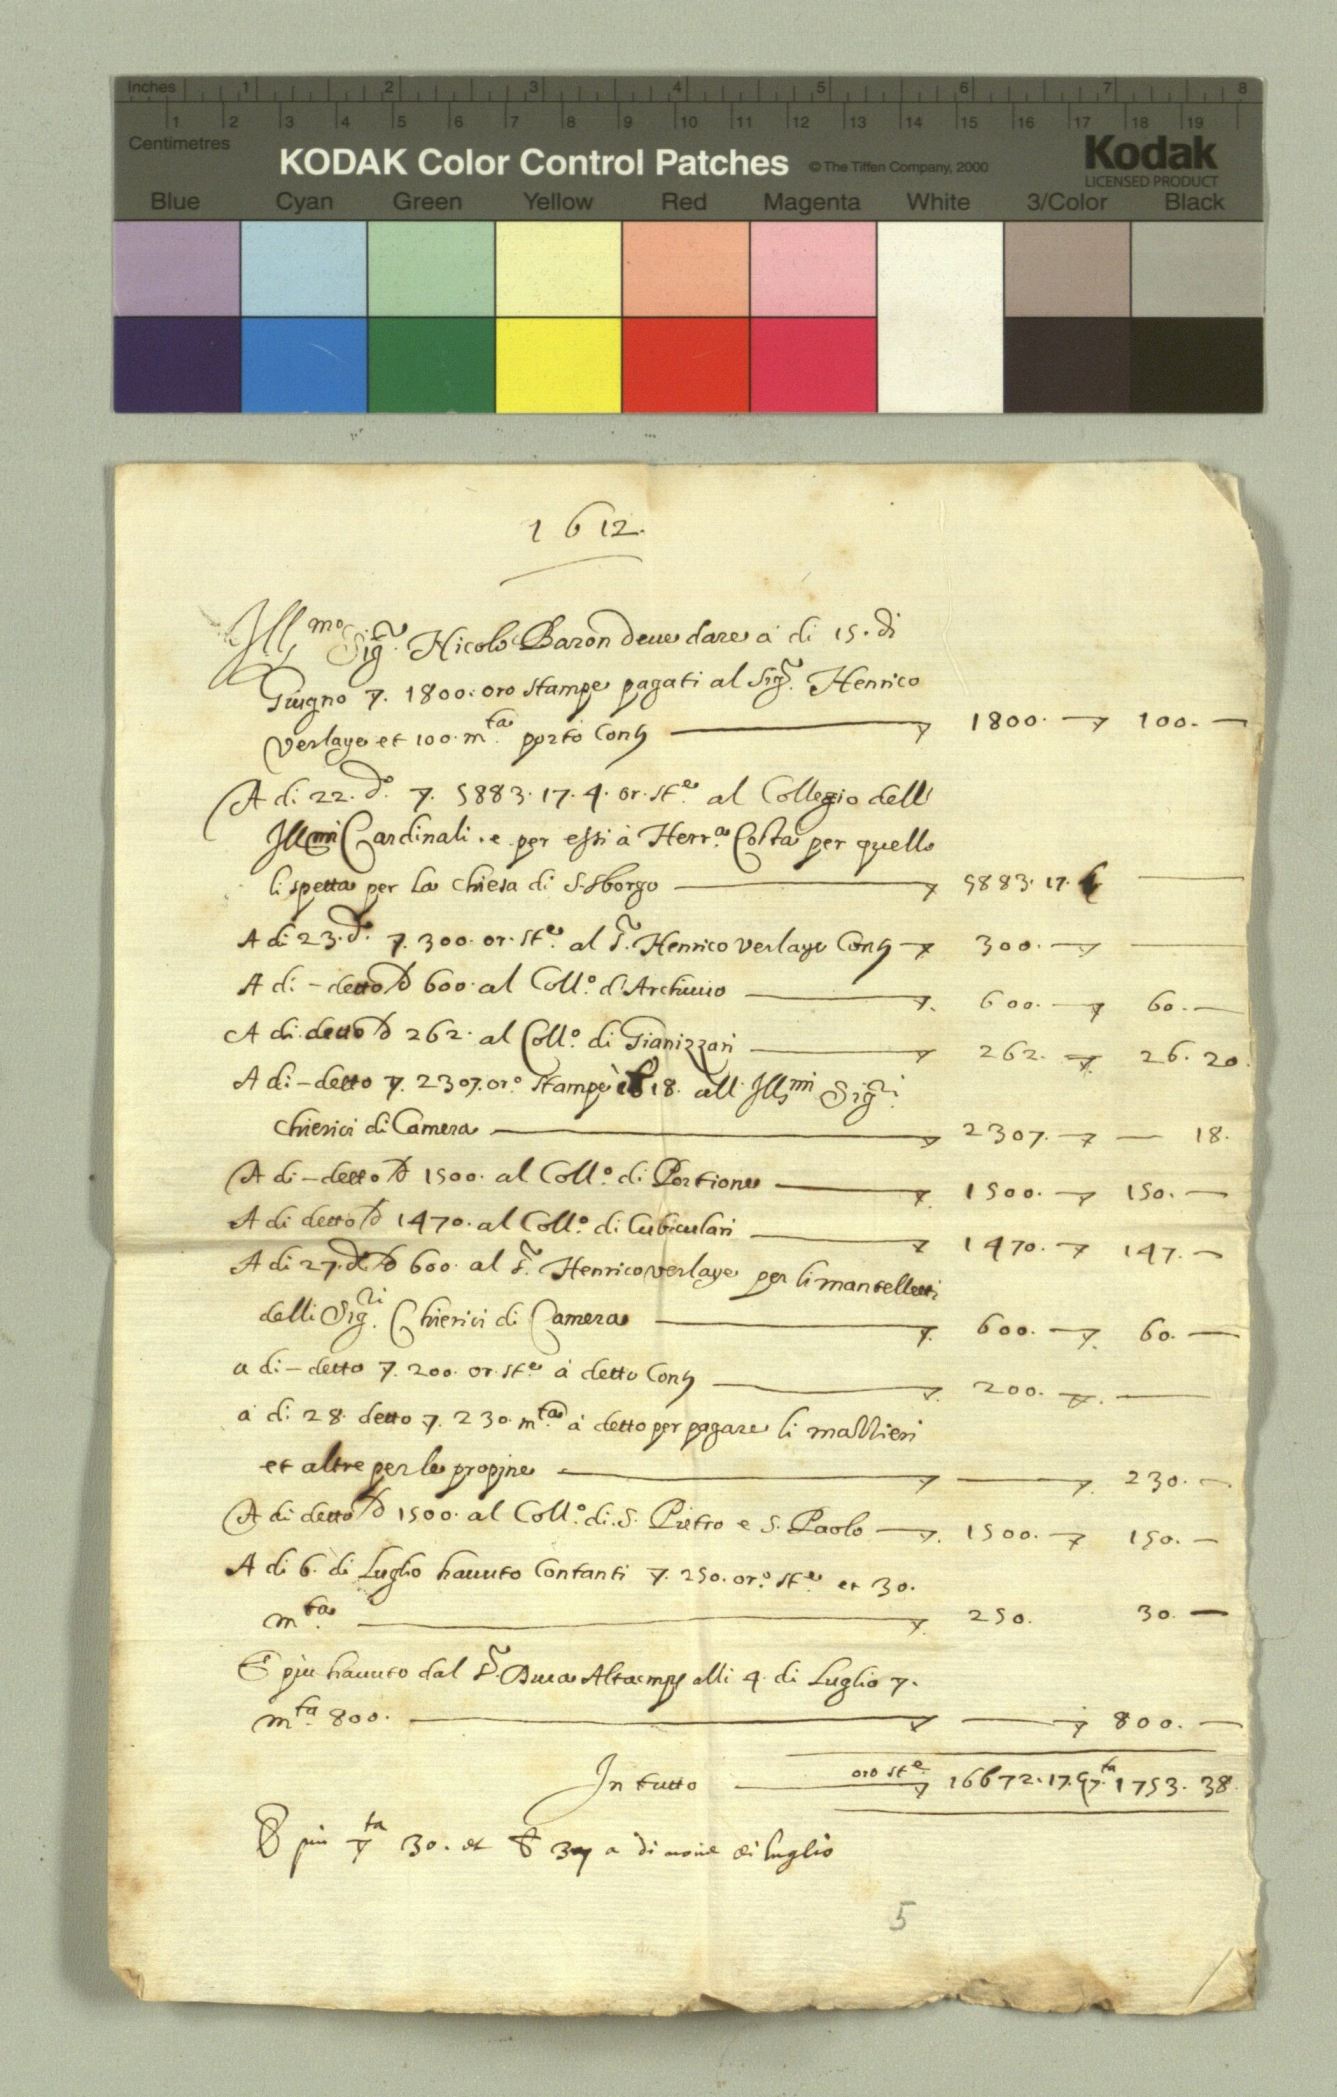 Inches 1 2 3 4 5 6 7 8
1 2 3 4 5 6 7 8 9 10 11 12 13 14 15 16 17 18 19
Centimetres
KODAK Color Control Patches © The Tiffen Company, 2000 Kodak
LICENSED PRODUCT
Blue Cyan Green Yellow Red Magenta White 3/Color Black
1612.
Ill.mo Sig.r Nicolò Baron deue dare a di 15. di
Giugno ▽. 1800. oro stampe pagati al Sig.r Henrico
Verlaye et 100. m.ta portò Cont. ▽ 1800. — ▽ 100. —
A di 22. d.o ▽. 5883. 17. 4. or. st.e al Collegio delli
Ill.mi Cardinali. e per essi à Herr.a Costa per quello
li spetta per la chiesa di S.sborgo — ▽ 5883. 17. —
A di 23. d.o ▽. 300. or. st.e al S.r Henrico Verlaye Cont. — ▽ 300. — ▽ —
A di – detto ▽ 600. al Coll.o d'Archiuio — ▽. 600. — ▽ 60. —
A di detto ▽ 262. al Coll.o di Gianizzari — ▽ 262. — ▽ 26. 20.
A di – detto ▽. 2307. or.o stampe 18. all. Ill.mi Sig.ri
Chierici di Camera — ▽ 2307. — ▽ — 18.
A di – detto ▽ 1500. al Coll.o di Portione — ▽. 1500. — ▽ 150. —
A di detto ▽ 1470. al Coll.o di Cubiculari — ▽ 1470. — ▽ 147. —
A di 27. d.o ▽ 600. al S.r Henrico Verlaye per li mantelletti
delli Sig.ri Chierici di Camera — ▽. 600. — ▽. 60. —
a di – detto ▽. 200. or. st.e à detto Cont. — ▽. 200. — ▽. —
a di 28. detto ▽. 230. m.ta à detto per pagare li mazzieri
et altre per le propine — ▽ — ▽. 230. —
A di detto ▽ 1500. al Coll.o di. S. Pietro e S. Paolo — ▽. 1500. — ▽ 150. —
A di 6. di Luglio hauuto Contanti ▽. 250. or.o st.e et 30.
m.ta — ▽. 250. 30. —
E più hauuto dal S.r Duca Altaemps alli 4. di Luglio ▽.
m.ta 800. — ▽ — ▽ 800. —
In tutto — oro st.e ▽ 16672. 17. ▽.ta 1753. 38.
E più ▽ta 30. et 37 a di noue di luglio
5